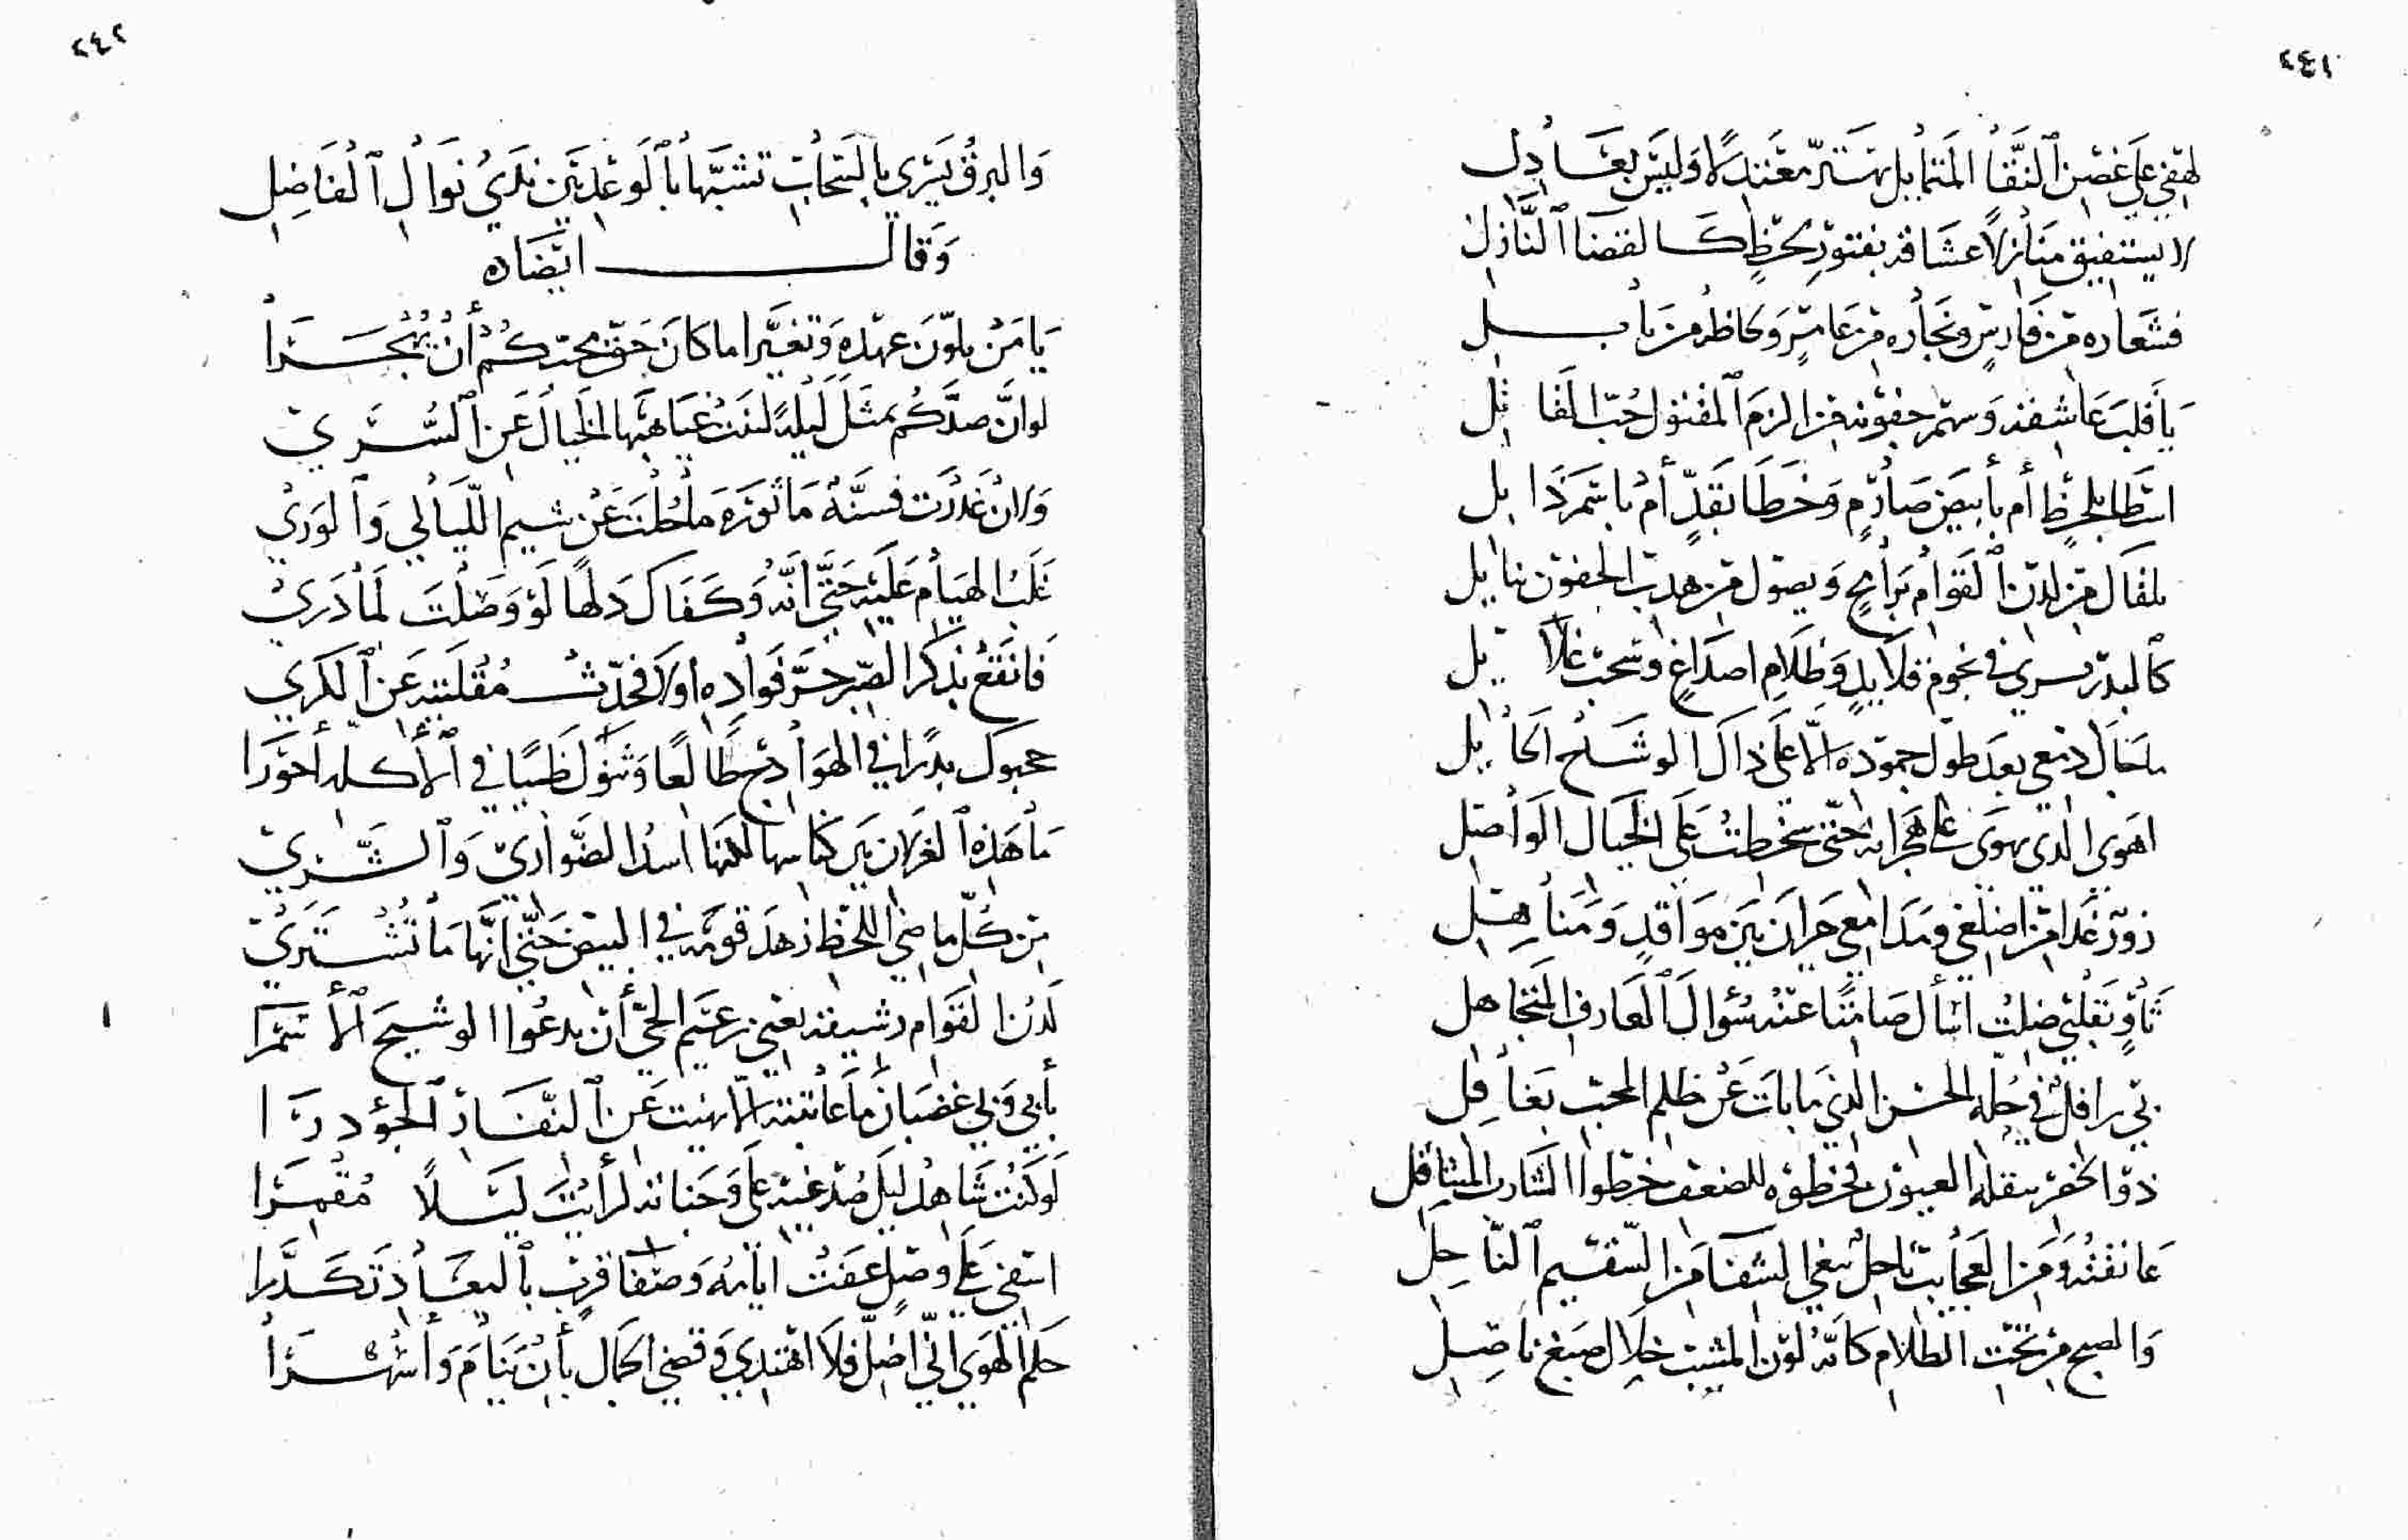 ٢٤١
لهفي على غصن النقا المتمايل يهتز معتدلا وليس بعادل
لا يستفيق منازلا عشاقه بفتور لحظ كالقضا النازل
فشعاره من فارس ونجاره من عامر ولحاظه من بابل
يا قلب عاشقه وسهم جفونه من الزم المقتول حب القاتل
اسطا بلحظ أم بأبيض صارم وخطا بقد أم بأسمر ذابل
يلقاك من لدن القوام برامح ويصول من هدب الجفون بنابل
كالبدر يسري في نجوم قلايد وظلام اصداغ وسحب غلايل
ما حال دمعي بعد طول جموده الا على ذاك الوشاح الحايل
اهوى الذي يهوى على هجرانه حتى سخطت على الخيال الواصل
زور غدا من اضلعي ومدامعي حران بين مواقد ومناهل
ثاو بقلبي ظلت اسأل صامتا عنه سؤال العارف المتجاهل
بي رافل في حلة الحسن الذي ما بات عن ظلم المحب بغافل
ذو الخصر يثقله العيون فخطوه للضعف خطو الشارب المتثاقل
عانقته ومن العجايب ناحل يبغي الشفا من السقيم الناحل
والصبح من تحت الظلام كأنه لون المشيب خلال صبغ ناصل
٢٤٢
والبرق يسري بالسحاب تشبها بالوعد بين يدي نوال الفاضل
وقال ايضا
يا من تلون عهده وتغيرا ما كان حق محبكم أن يهجرا
لو ان صدكم تمثل ليلة لنهت غياهبها الخيال عن السرى
ولان غدرت فسنة مأثورة ما حلت عن شيم الليالي والورى
غلب الهيام عليه حتى انه وكفاك دلها لو وصلت لما درى
فانقع بذكر الصبر حر فواده أو لا فحدث مقلتيه عن الكرى
حجبوك بدرا في الهوادج طالعا وثنوك ظبيا في الاكلة أحورا
ما هذه الغزلان بين كناسها لكنها اسد الضواري والشرى
من كل ماضي اللحظ زهد قومه في البيض حتى انها ما تشترى
لدن القوام رشيقه يغني زعيم الحي أن يدعوا الوشيج الأسمرا
بأبي وبي غضبان ما عاتبته الا نهيت عن النفار الجؤدرا
لو كنت شاهد ليل صدغيه على وجناته لرأيت ليلا مقمرا
اسفي على وصل عفت ايامه وصفا قرب بالبعاد تكدرا
حكم الهوى اني اضل فلا اهتدي وقضى الجمال بأن ينام وأسهرا